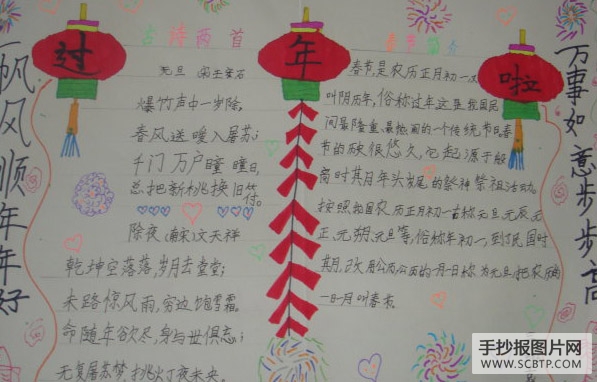 过 年 啦
一帆风顺年年好
万事如意步步高
古诗两首
元旦 宋王安石
爆竹声中一岁除,
春风送暖入屠苏;
千门万户曈曈日,
总把新桃换旧符。
除夜 (南宋)文天祥
乾坤空落落,岁月去堂堂;
末路惊风雨,穷边饱雪霜。
命随年欲尽,身与世俱忘;
无复屠苏梦,挑灯夜未央。
春节简介
春节,是农历正月初一,又
叫阴历年,俗称过年,这是我国民
间最隆重、最热闹的一个传统节日。春
节的历史很悠久,它起源于殷
商时期年头岁尾的祭神祭祖活动。
按照我国农历,正月初一古称元旦、元辰、元
正、元朔、元旦等,俗称年初一,到了民国时
期,改用公历,公历的一月一日称为元旦,把农历
一月一日叫春节。
手抄报图片网
WWW.SCBTP.COM